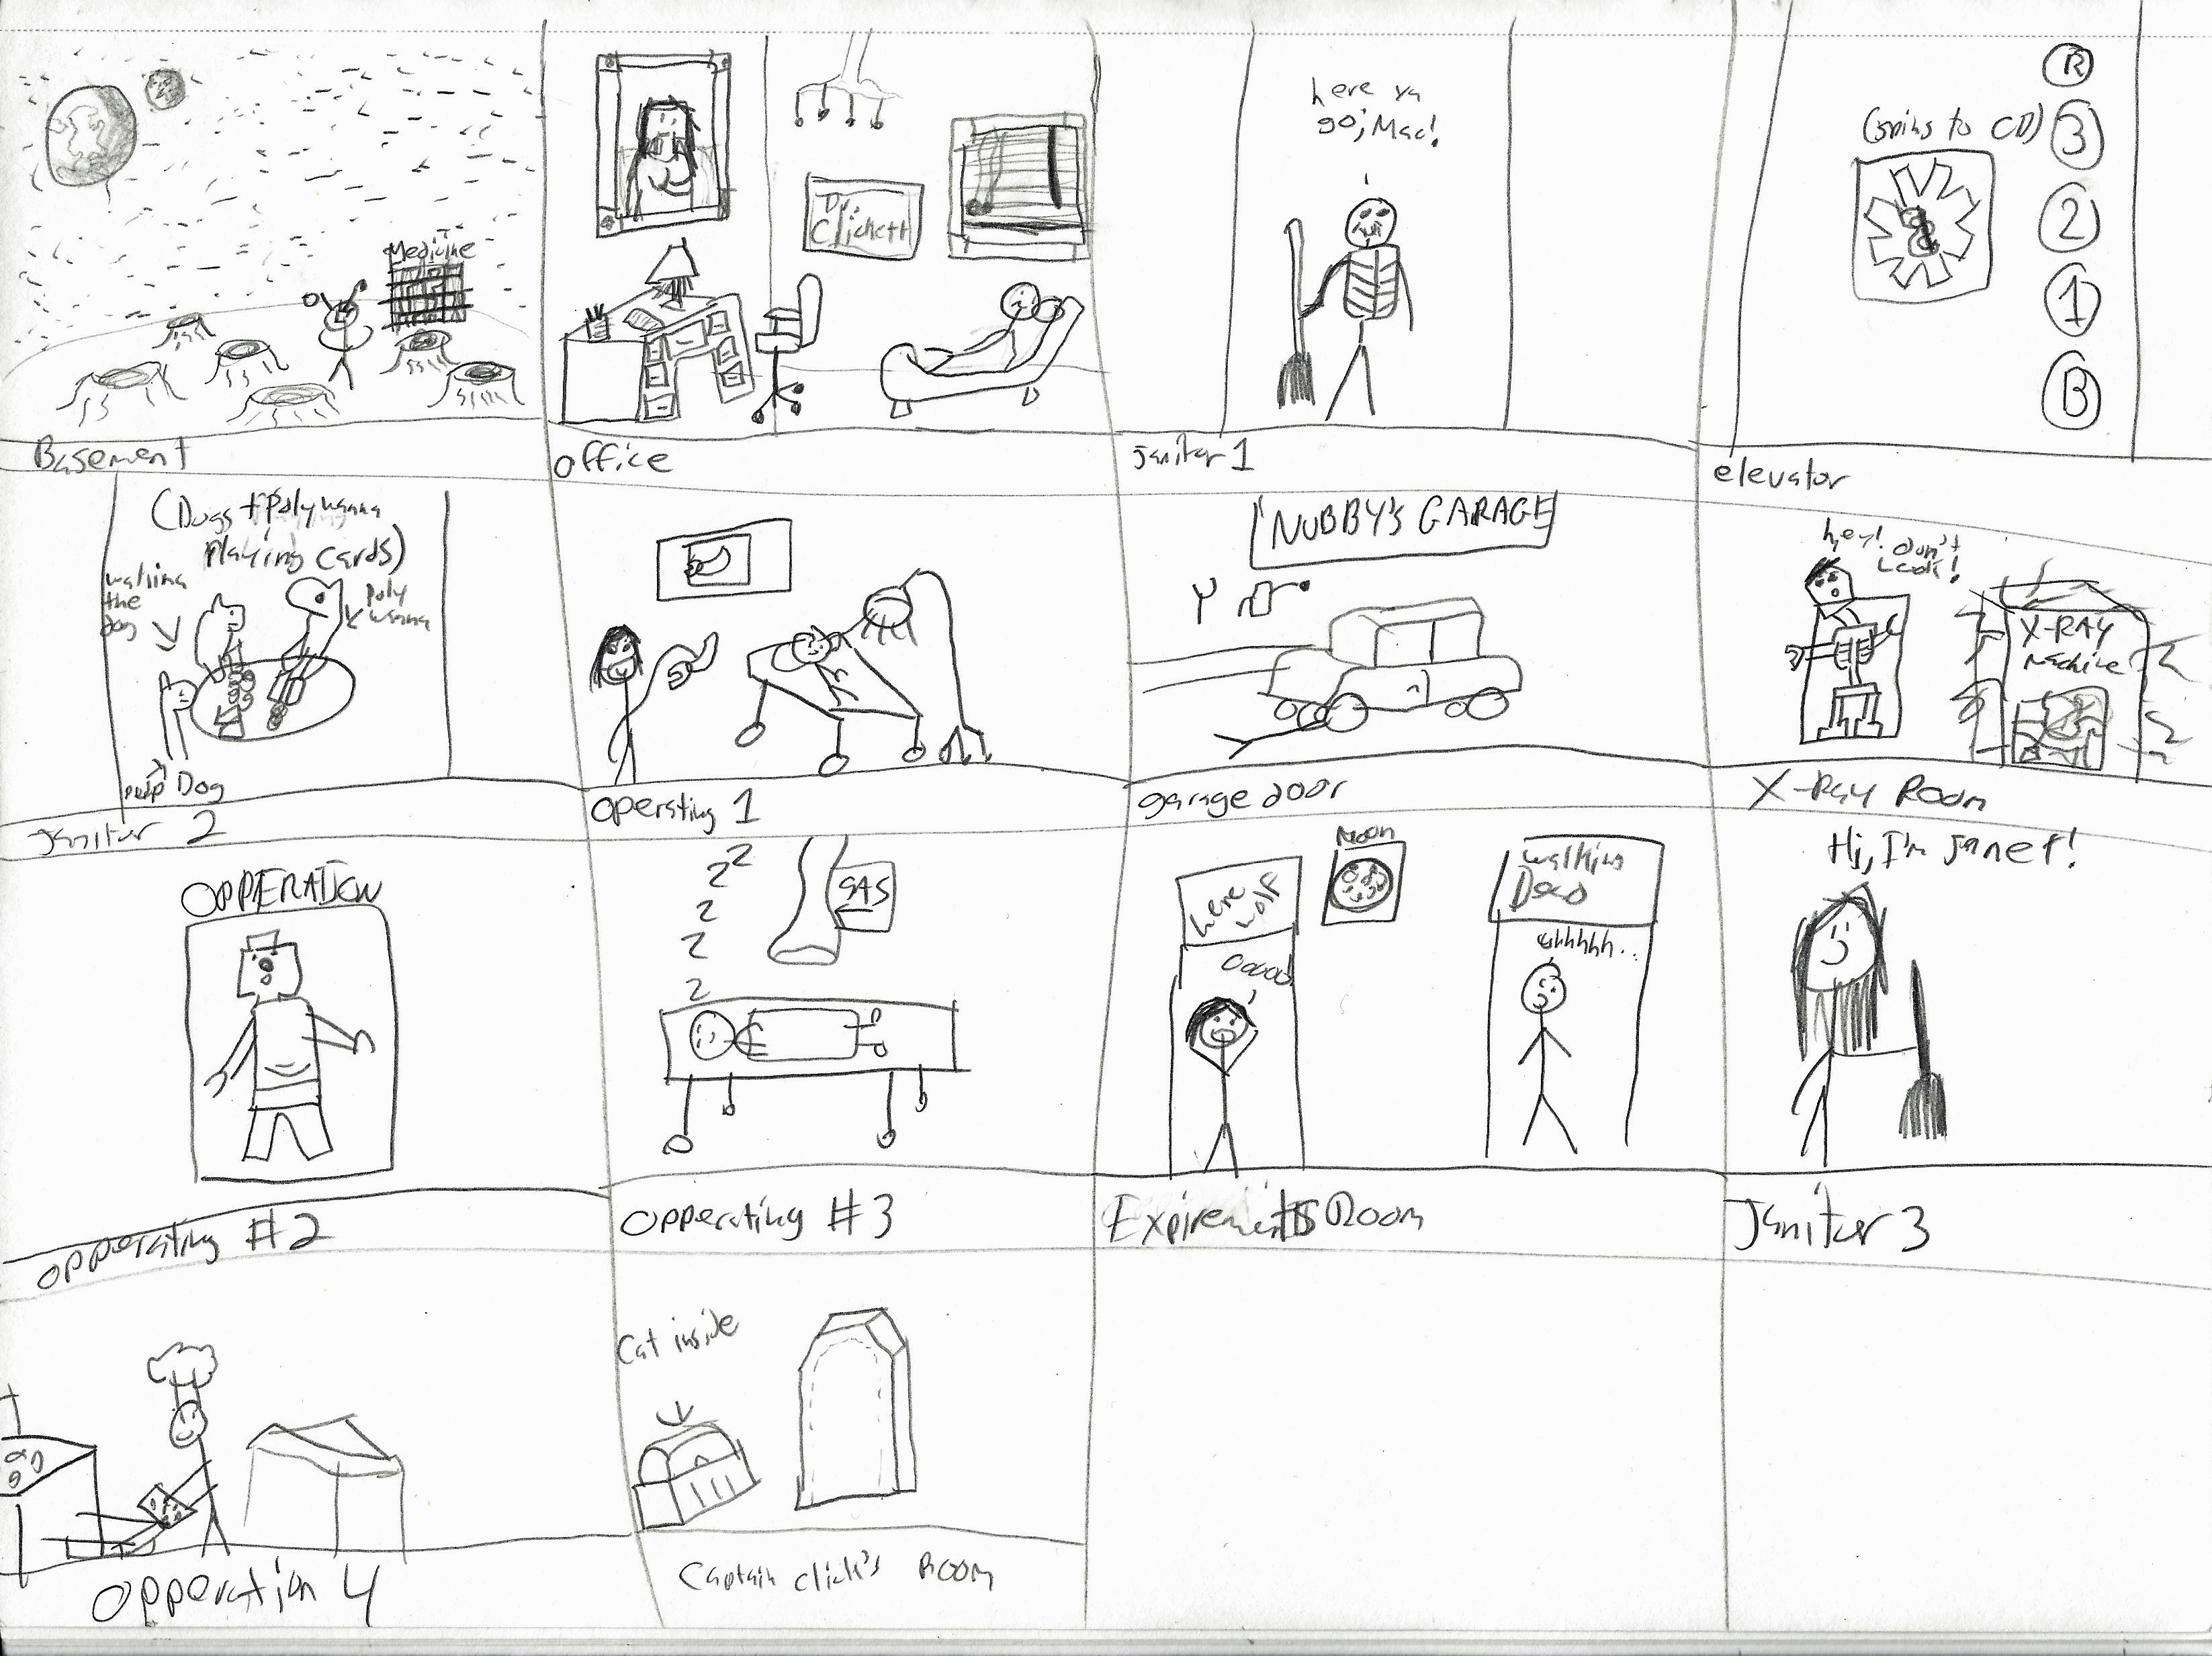 Medicine
Basement
Dr.
Clickett
office
here ya
go, Mac!
janitor 1
(going to CD)
R
3
2
1
B
elevator
(Dogs + Polywanna
Playing Cards)
walking
the
dog
Poly
wanna
pup Dog
janitor 2
operating 1
NUBBY'S GARAGE
garage door
hey! don't
Look!
X-RAY
Machine
X-Ray Room
OPPERATION
opperating #2
z z
z
z
z
GAS
opperating #3
here
wolf
Oooo!
Moon
walking
Dead
uhhhhh..
Expirements Room
Hi, I'm Janet!
Janitor 3
opperation 4
Cat inside
Captain click's Room